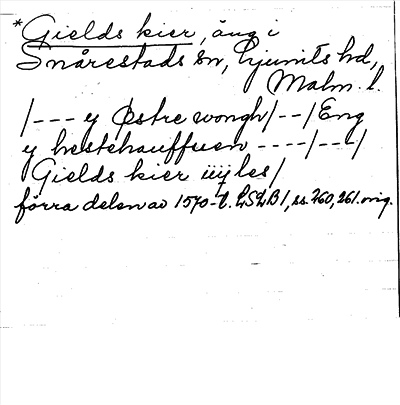 *Gields kier, äng i
Snårestads sn, Ljunits hd,
Malm. l.
/--- y Østre wongh/--/Eng
y hestehauffuen ----/--/
Gields kier iiij les/
förra delen av 1570-t. LSLB 1, ss. 260, 261. orig.